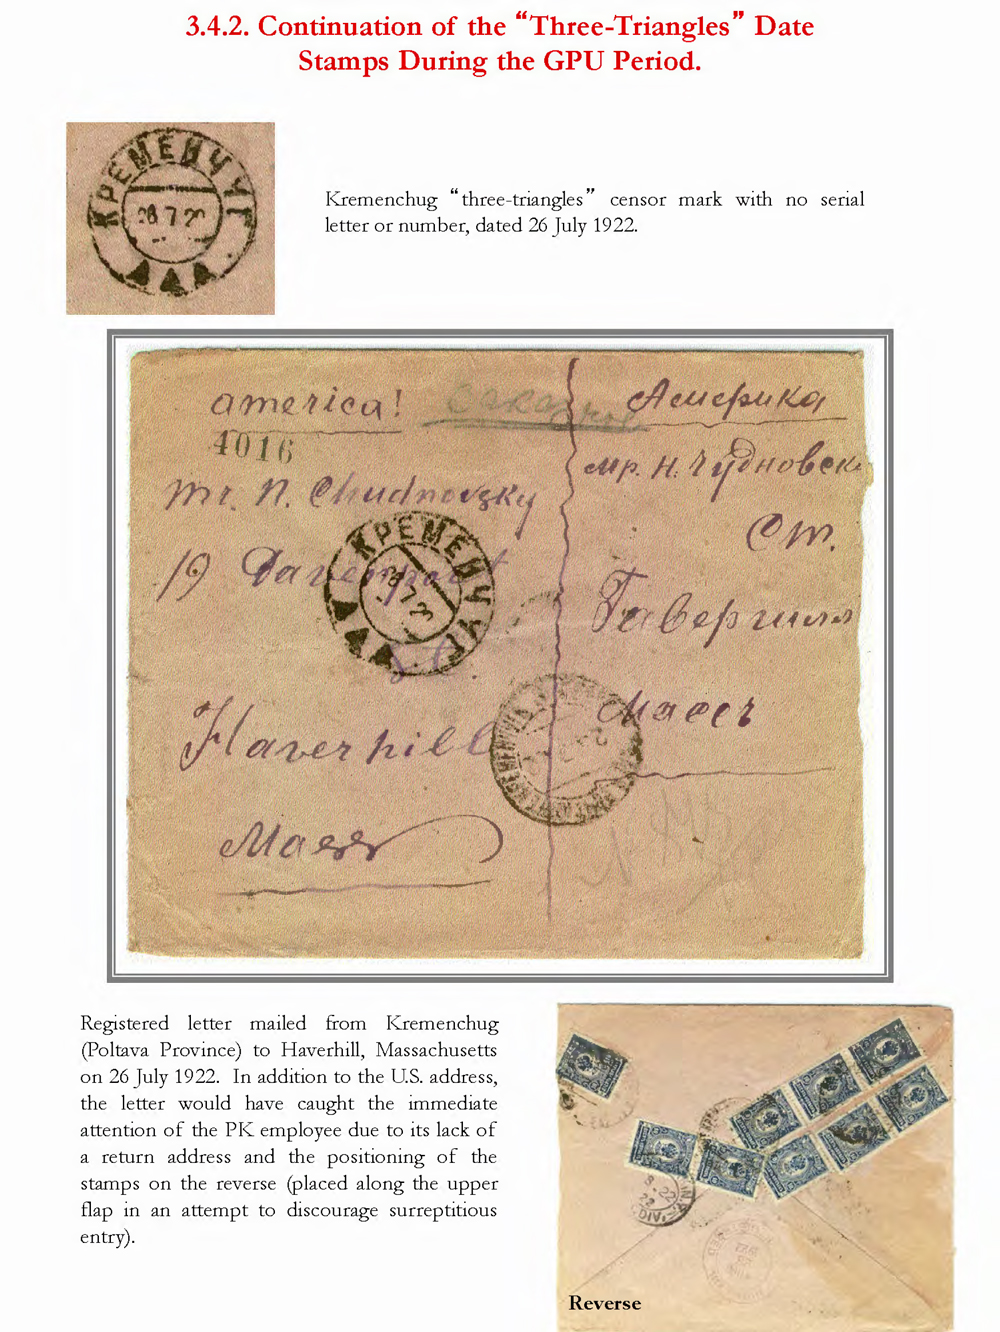 3.4.2. Continuation of the “Three-Triangles” Date
Stamps During the GPU Period.
КРЕМЕНЧУГ
26 7 22
Kremenchug “three-triangles” censor mark with no serial
letter or number, dated 26 July 1922.
america!
Америка
4016
mr. N. Chudnovsky
мр. Н. Чудновск
Ст.
КРЕМЕНЧУГ
19 Davenport
St.
Гавергилл
Haverhill
Масст
Mass
Registered letter mailed from Kremenchug
(Poltava Province) to Haverhill, Massachusetts
on 26 July 1922. In addition to the U.S. address,
the letter would have caught the immediate
attention of the PK employee due to its lack of
a return address and the positioning of the
stamps on the reverse (placed along the upper
flap in an attempt to discourage surreptitious
entry).
Reverse